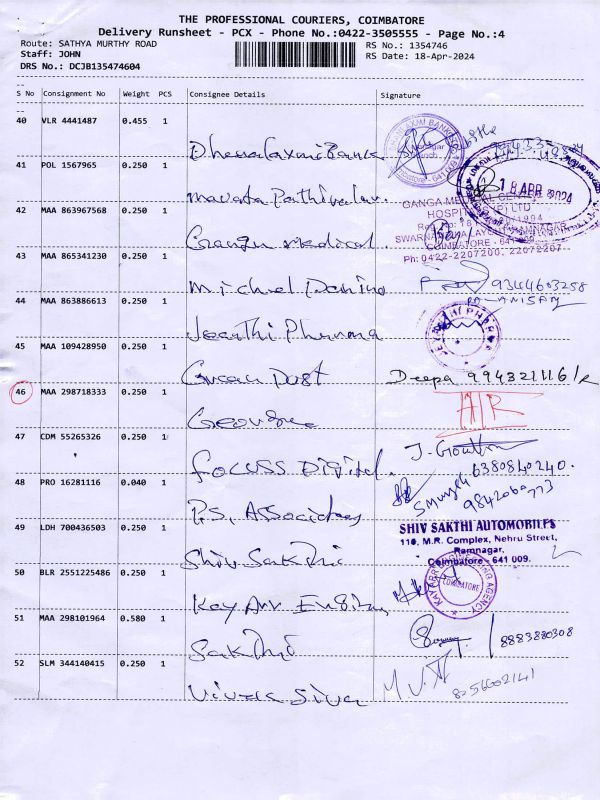 THE PROFESSIONAL COURIERS, COIMBATORE
Delivery Runsheet - PCX - Phone No.:0422-3505555 - Page No.:4
Route: SATHYA MURTHY ROAD
Staff: JOHN
DRS No.: DCJB135474604
RS No.: 1354746
RS Date: 18-Apr-2024
S No Consignment No Weight PCS Consignee Details Signature
40 VLR 4441487 0.455 1
Dhanalaxmi Bank
41 POL 1567965 0.250 1
18 APR 2024
42 MAA 863967568 0.250 1
Ganga Medical
GANGA MEDICAL
HOSPITAL
COIMBATORE - 641
Ph: 0422-2207200, 22072207
43 MAA 865341230 0.250 1
Michael
9344603258
44 MAA 863886613 0.250 1
Jeanthi Pharma
45 MAA 109428950 0.250 1
Dost
Deepa
46 MAA 298718333 0.250 1
George
47 CDM 55265326 0.250 1
focuss Digital.
6380840240.
48 PRO 16281116 0.040 1
P.S. Associates
49 LDH 700436503 0.250 1
Shiv Sakthi
SHIV SAKTHI AUTOMOBILES
110, M.R. Complex, Nehru Street,
Ramnagar,
Coimbatore - 641 009.
50 BLR 2551225486 0.250 1
Kay Arr
COIMBATORE
51 MAA 298101964 0.580 1
Sakthi
8883880308
52 SLM 344140415 0.250 1
Siva
8256602141